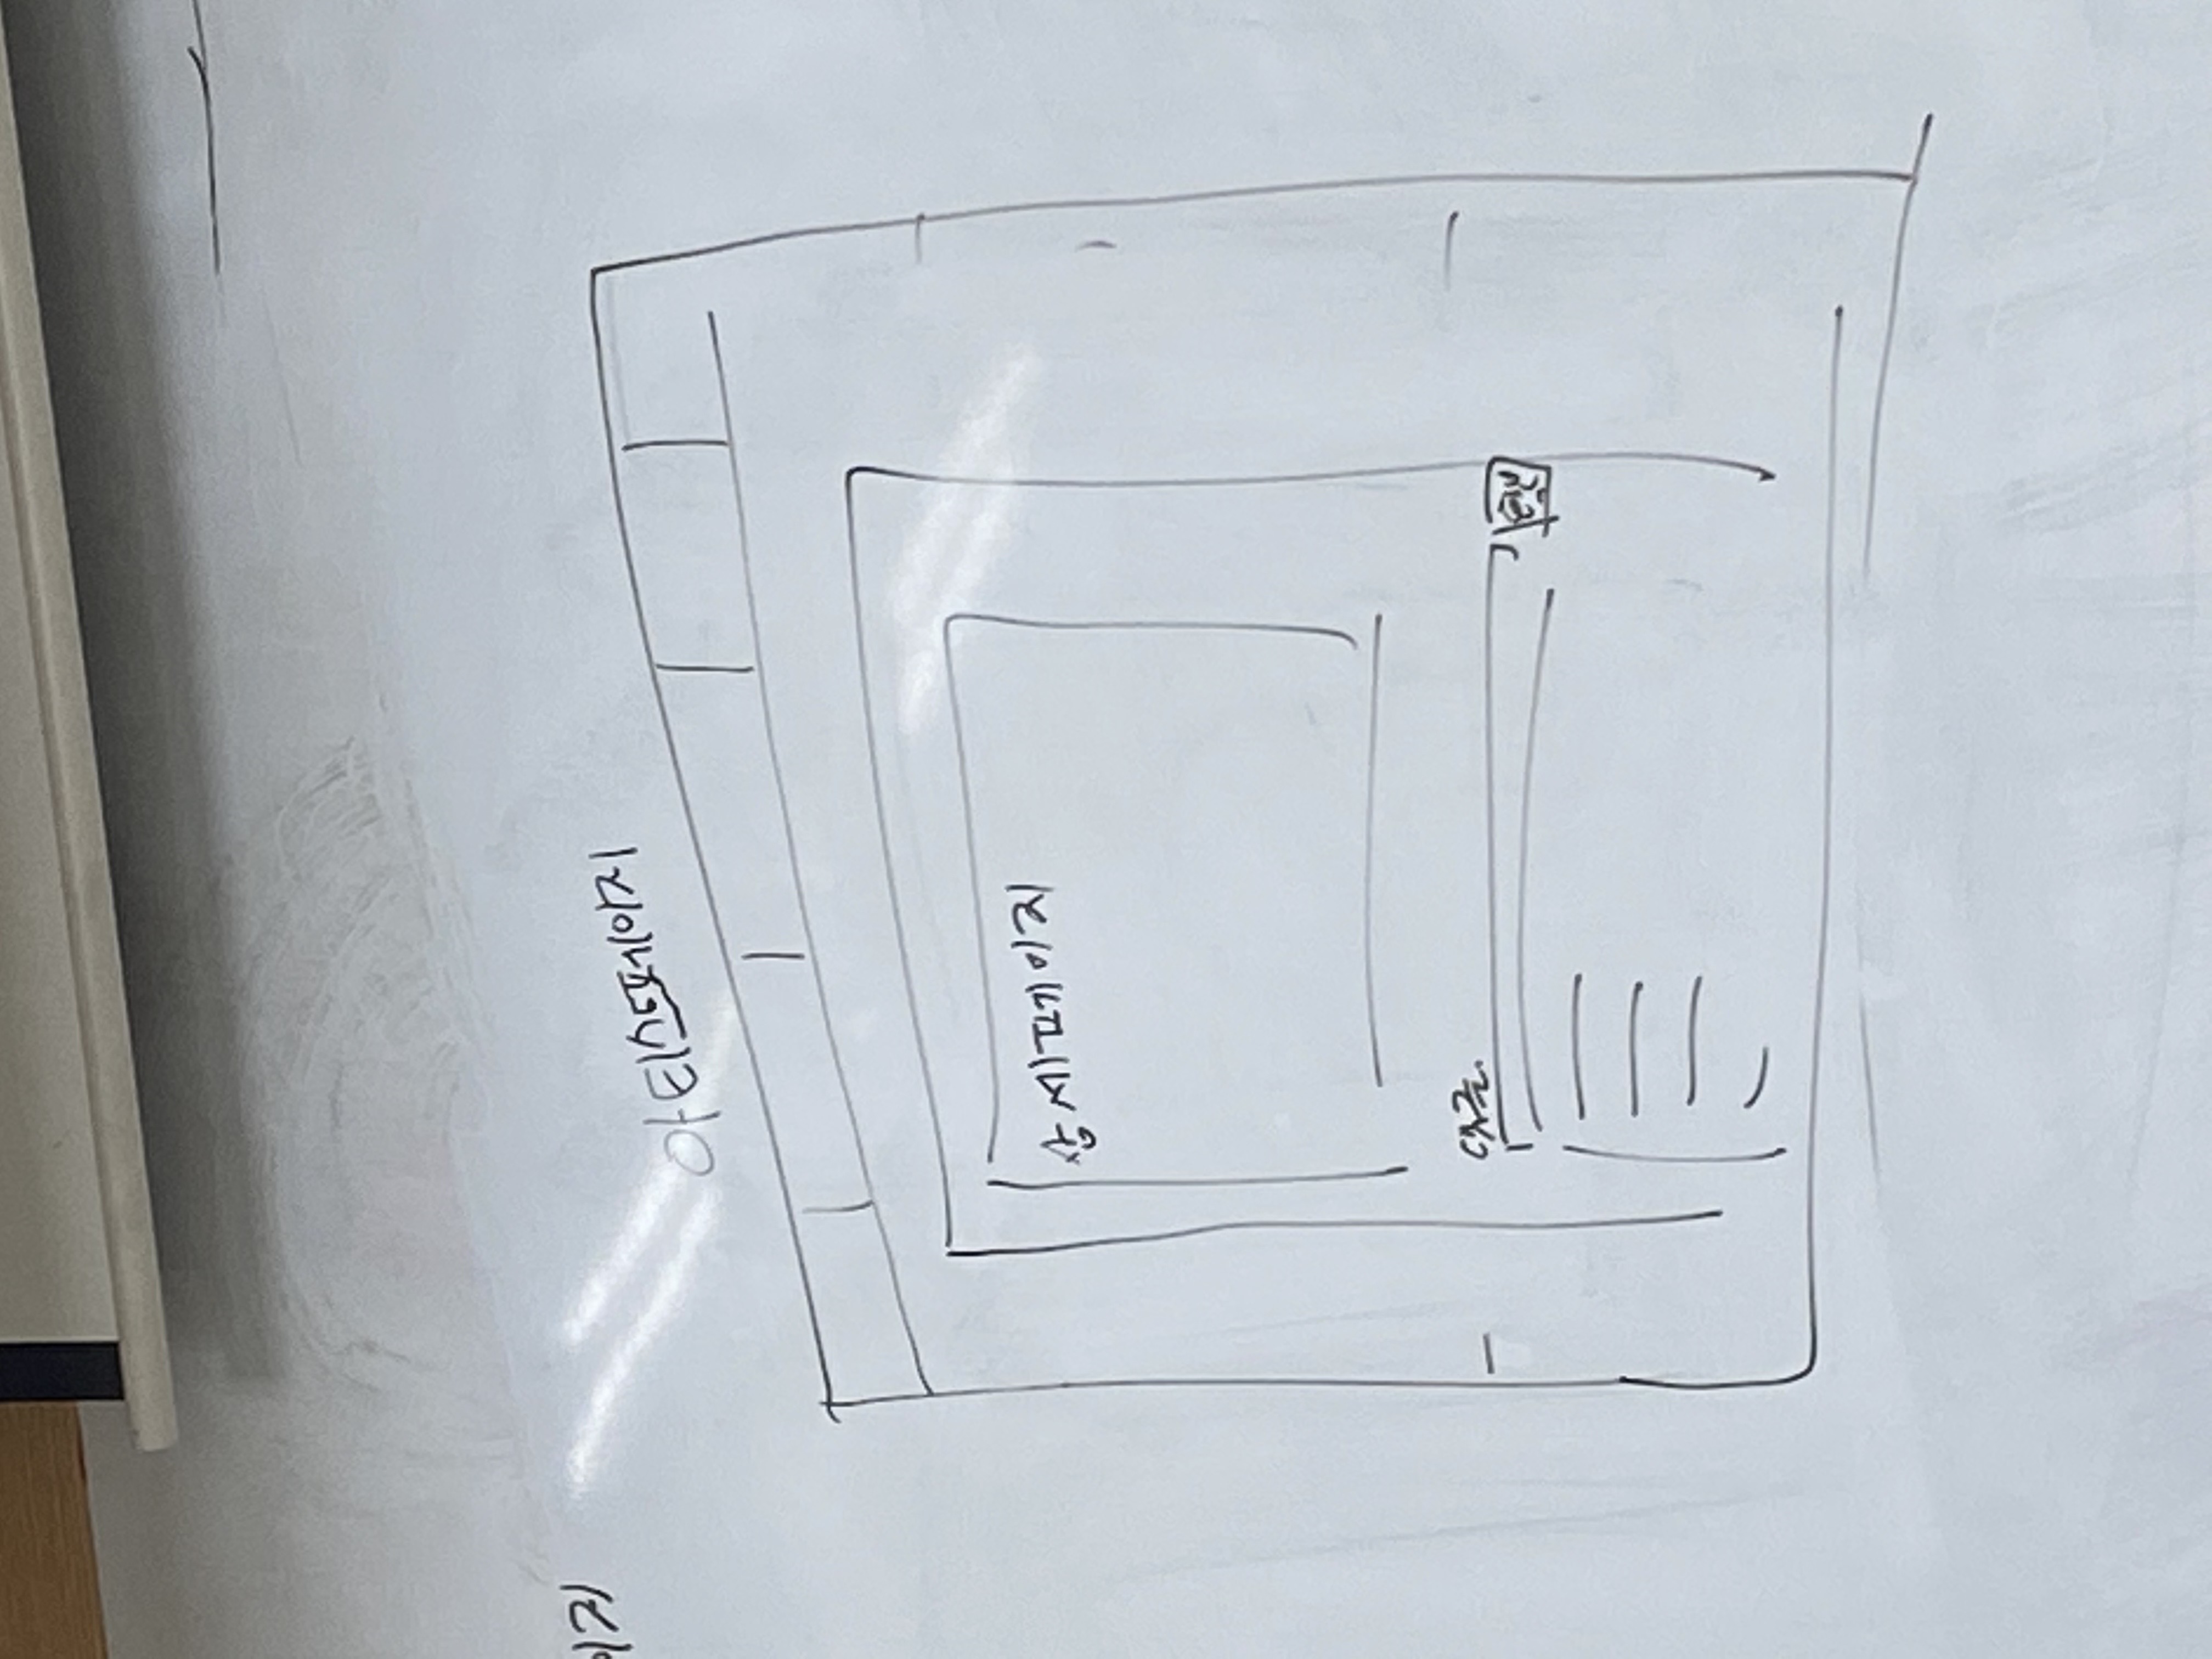 이지
아티스트페이지
상세페이지
댓글